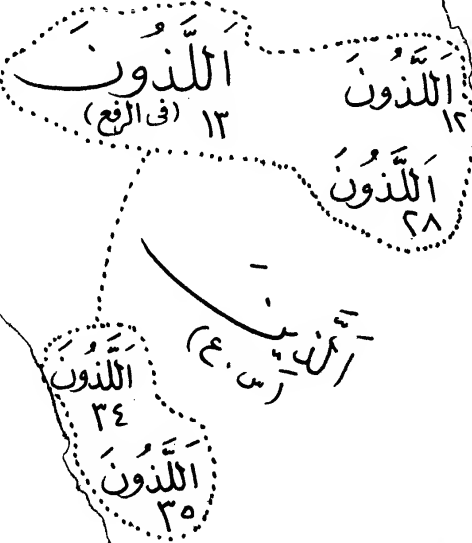 اَللَّذُونَ
(فى الرفع) ١٣
اَللَّذُونَ
١٢
اَللَّذُونَ
٢٨
اَلَّذِينَ
(س. ع)
اَللَّذُونَ
٣٤
اَللَّذُونَ
٣٥